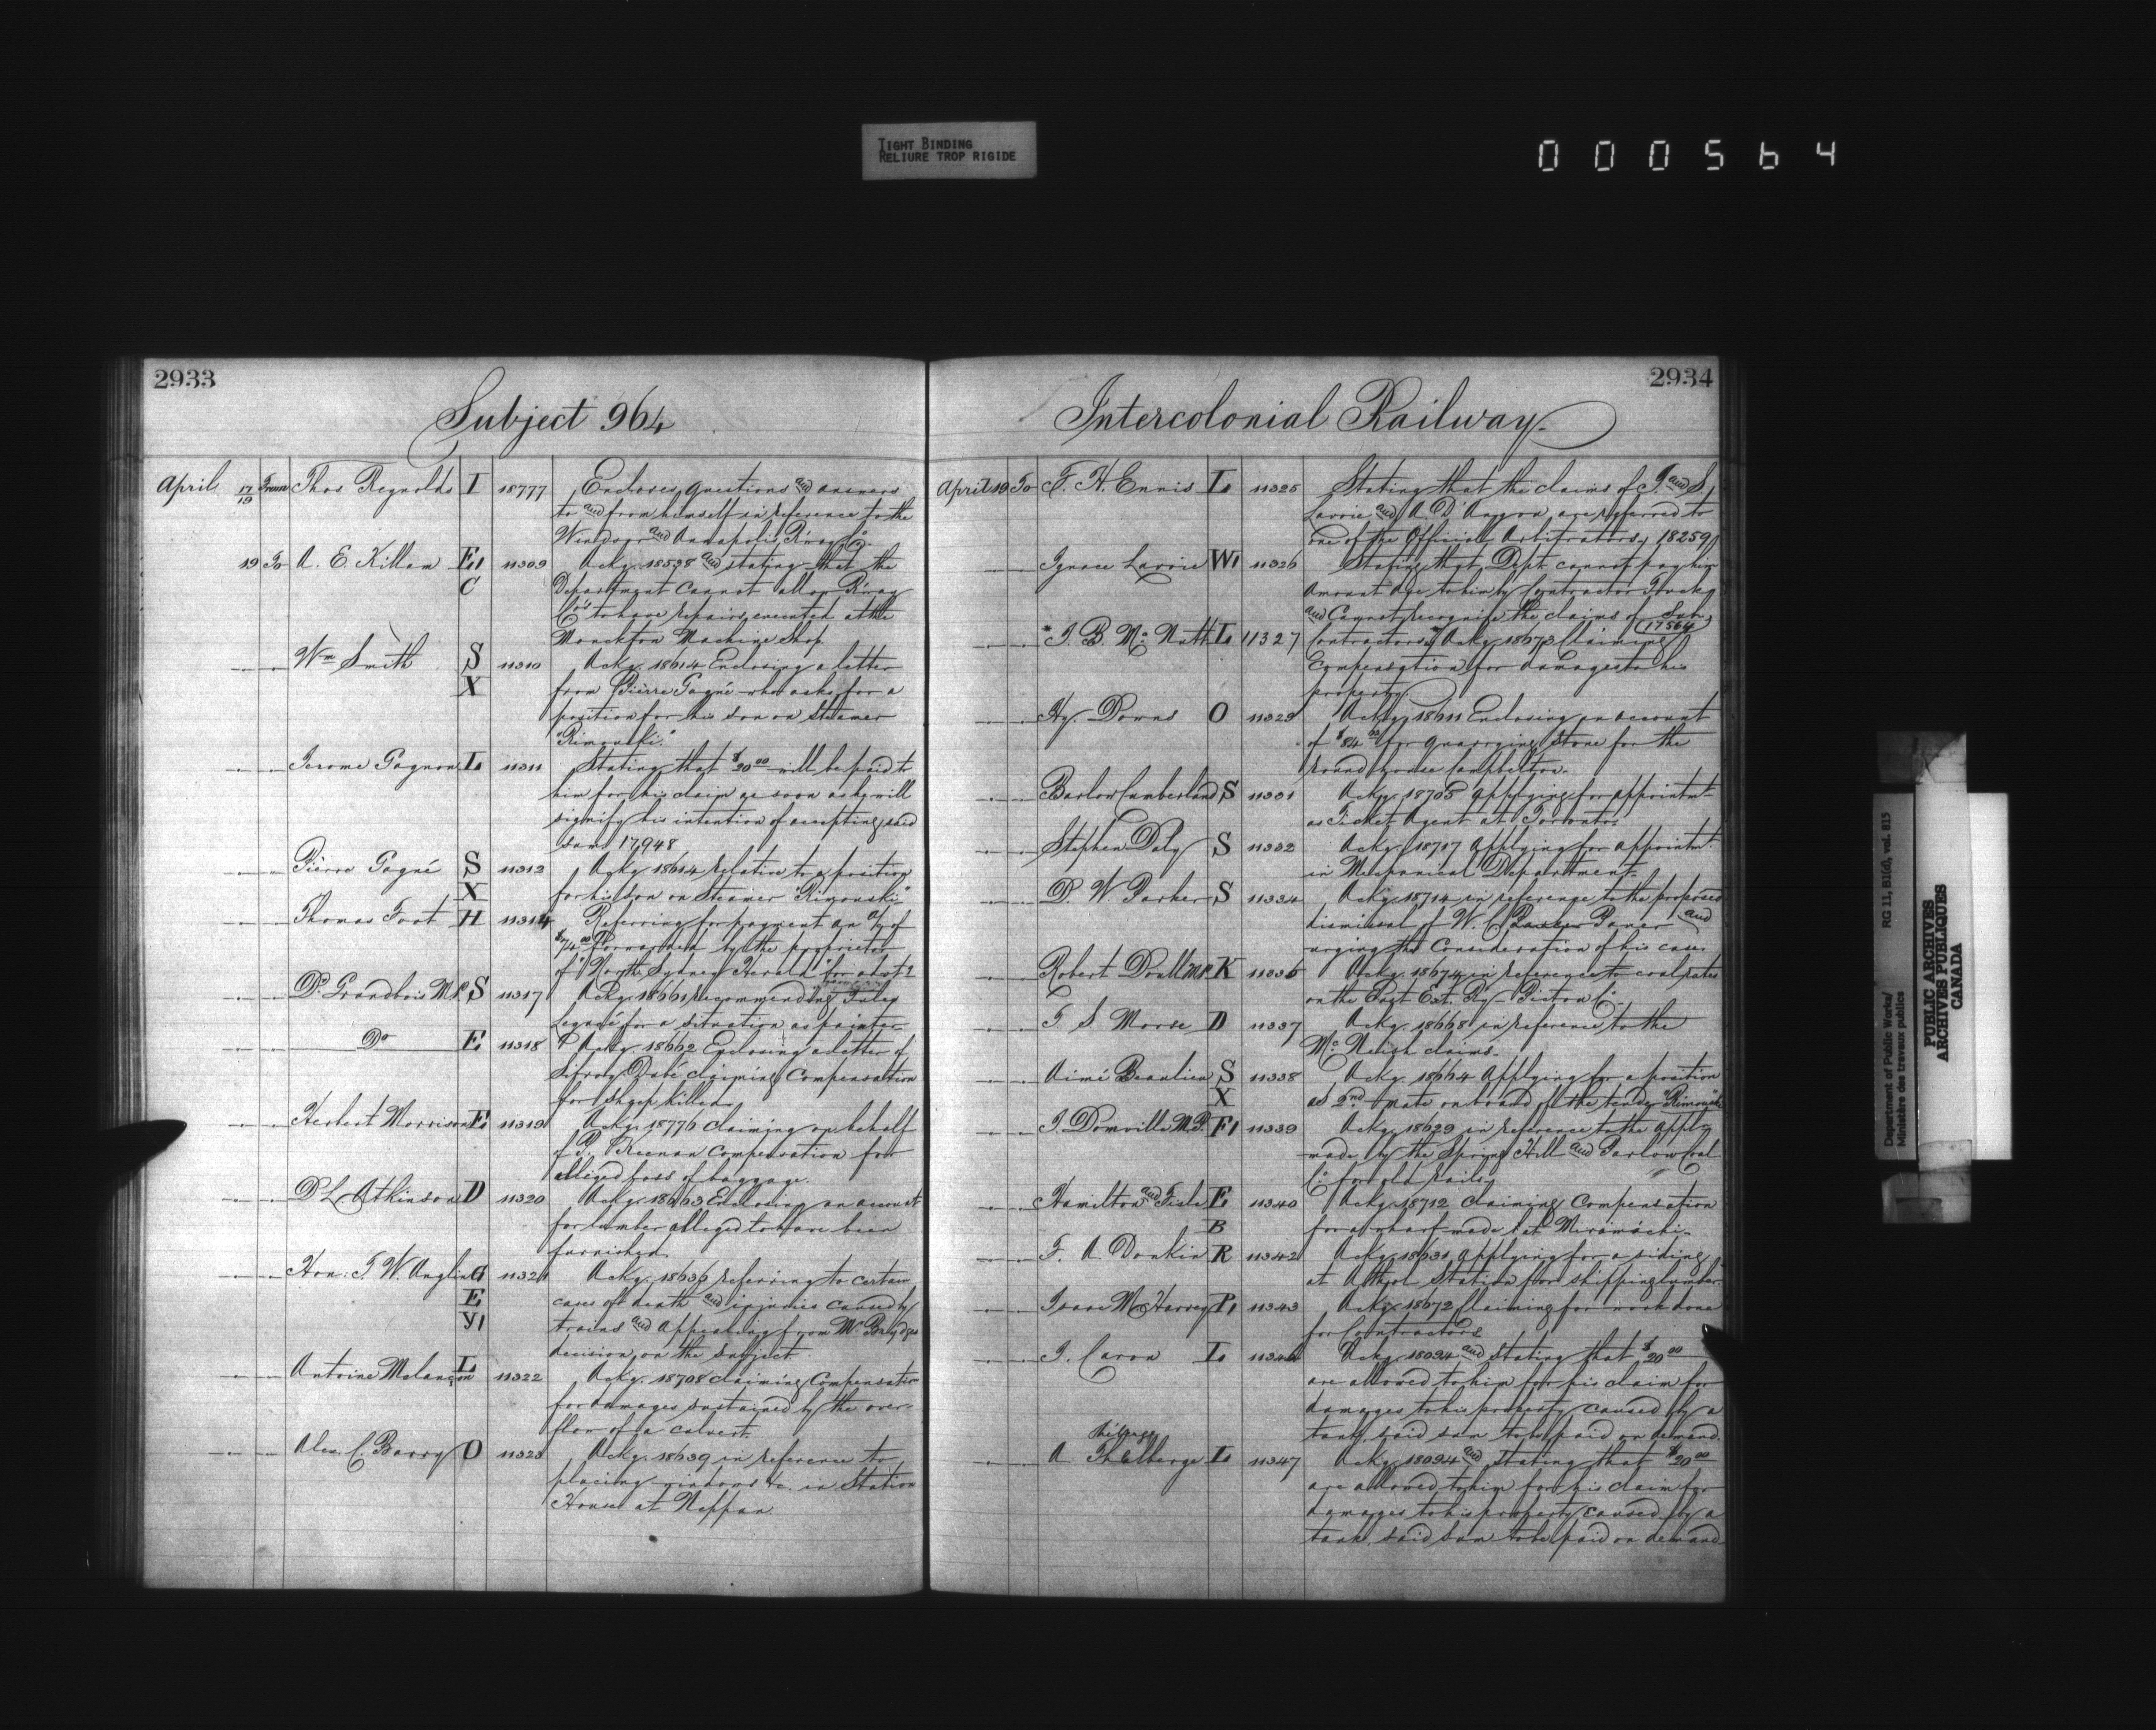 TIGHT BINDING
RELIURE TROP RIGIDE
000564
2933
Subject 964
April 17/19 From Thos Reynolds I 18777 Encloses questions and answers
to and from himself in reference to the
Windsor and Annapolis R'way Co.
19 To A. E. Killam E, 11309 Ackg. 18598 and stating that the
C Department cannot allow R'way
Co's to have repairs executed at the
Monckton Machine Shop.
Wm Smith S 11310 Ackg. 18614 Enclosing a letter
X from Pièrre Gagné who asks for a
position for his son on Steamer
"Rimouski."
Jerome Gagnon L 11311 Stating that $20.00 will be paid to
him for his claim as soon as he will
signify his intention of accepting said
sum 17,948
Pièrre Gagné S 11312 Ackg. 18614 relative to a position
X for his son on Steamer "Rimouski."
Thomas Foot H 11314 Referring for payment an a/c of
$74.00 forwarded by the proprietor
of "North Sydney Herald" for advts
P. Grandbois M.P. S 11317 Ackg. 18661 recommending
Legacé for a situation as painter
Do E 11318 Ackg. 18662 Enclosing a letter of
Sifroy Dubé claiming Compensation
for Sheep killed.
Herbert Morrison E, 11319 Ackg. 18776 claiming on behalf
of P. Keenan Compensation for
alleged loss of baggage.
P. L. Atkinson D 11320 Ackg. 18663 Enclosing an account
for lumber alleged to have been
furnished.
Hon: T. W. Anglin G 11321 Ackg. 18636 referring to certain
E cases of death and injuries caused by
Y, trains and appealing from Mr Brydges
decision on the subject.
Antoine Melançon L 11322 Ackg. 18708 claiming Compensation
for damages sustained by the over-
flow of a culvert.
Alex. C. Barry O 11323 Ackg. 18639 in reference to
placing windows &c. in Station
House at Nappan.
2934
Intercolonial Railway.
April 19 To F. H. Ennis L 11325 Stating that the claims of J. and S.
Lavoie and A. D'Anjou are referred to
one of the Official Arbitrators, 18259
Ignace Lavoie W, 11326 Stating that Dept. cannot pay him
Amount due to him by Contractor
and Cannot recognise the claims of Sub-
17564
J. B. McNutt L 11327 Contractors. Ackg. 18673 Claiming
Compensation for damages to his
property.
Hy. Downs O 11329 Ackg. 18611 Enclosing an account
of $84.00 for quarrying stone for the
round house Campbelton.
Barlow Cumberland S 11331 Ackg. 18705 applying for appointmt
as Ticket Agent at Toronto.
Stephen Daly S 11332 Ackg. 18717 applying for appointmt
in Mechanical Department.
D. W. Parker S 11334 Ackg. 18714 in reference to the proposed
dismissal of W. C. and
urging the Consideration of his case.
Robert Doull M.P. K 11336 Ackg. 18674 in reference to coal rates
on the East. Ext. Ry - Picton Co.
T. S. Morse D 11337 Ackg. 18668 in reference to the
McNeish claims.
Aimé Beaulieu S 11338 Ackg. 18664 Applying for a position
X as 2nd mate on board of the tender "Rimouski"
J. Domville M.P. F, 11339 Ackg. 18629 in reference to the appln
made by the Spring Hill and Parlow Coal
Co. for old rails.
Hamilton and E 11340 Ackg. 18712 Claiming Compensation
B for a wharf made at Miramichi.
F. A. Donkin R 11342 Ackg. 18631 applying for a siding
at Athol Station for shipping lumber.
Isaac McHarvey P, 11343 Ackg. 18672 Claiming for work done
for Contractors
J. Caron L 11346 Ackg. 18094 and stating that $20.00
are allowed to him for his claim for
damages to his property caused by a
tank, said sum to be paid on demand.
A. Thelberge L 11347 Ackg. 18094 and stating that $20.00
are allowed to him for his claim for
damages to his property caused by a
tank, said sum to be paid on demand
Department of Public Works/ RG 11, B1(d), vol. 815
Ministère des travaux publics
PUBLIC ARCHIVES
ARCHIVES PUBLIQUES
CANADA